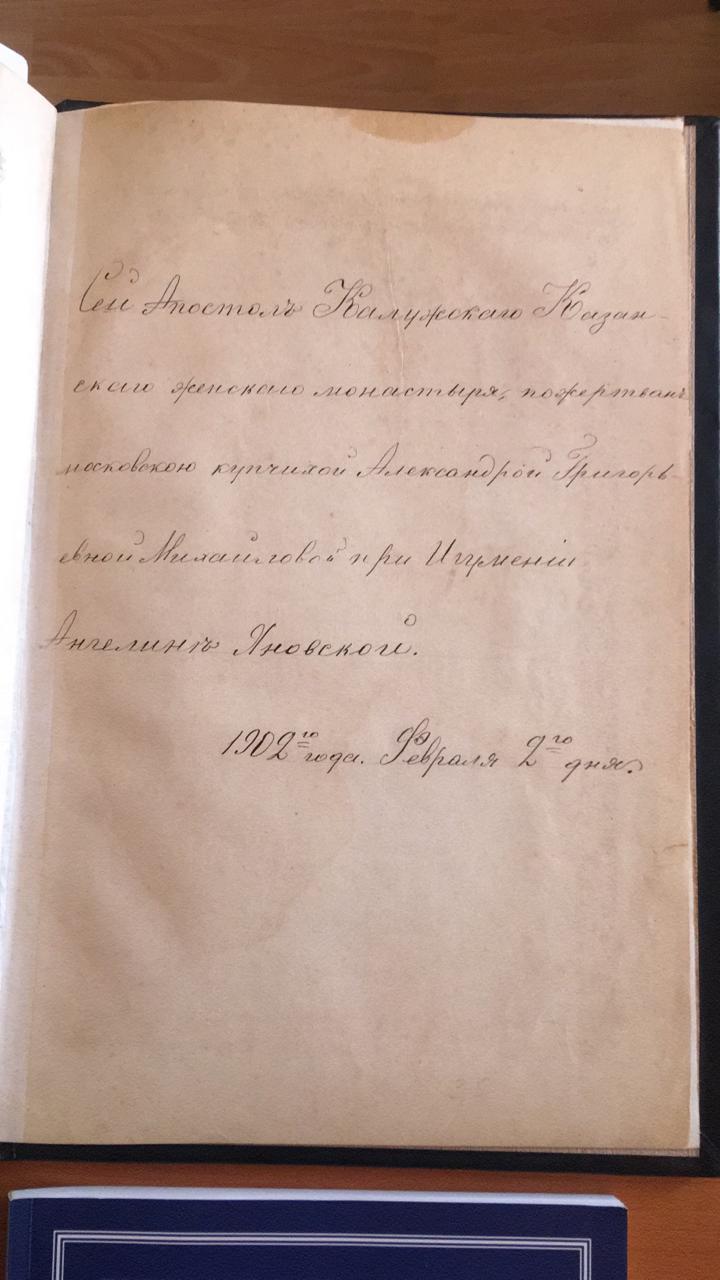 Сей Апостолъ Калужскаго Казан-
скаго женскаго монастыря, пожертванъ
московскою купчихой Александрой Григорь-
евной Михайловой при Игуменіи
Ангелинѣ Яновской.
1902го года. Февраля 2го дня.